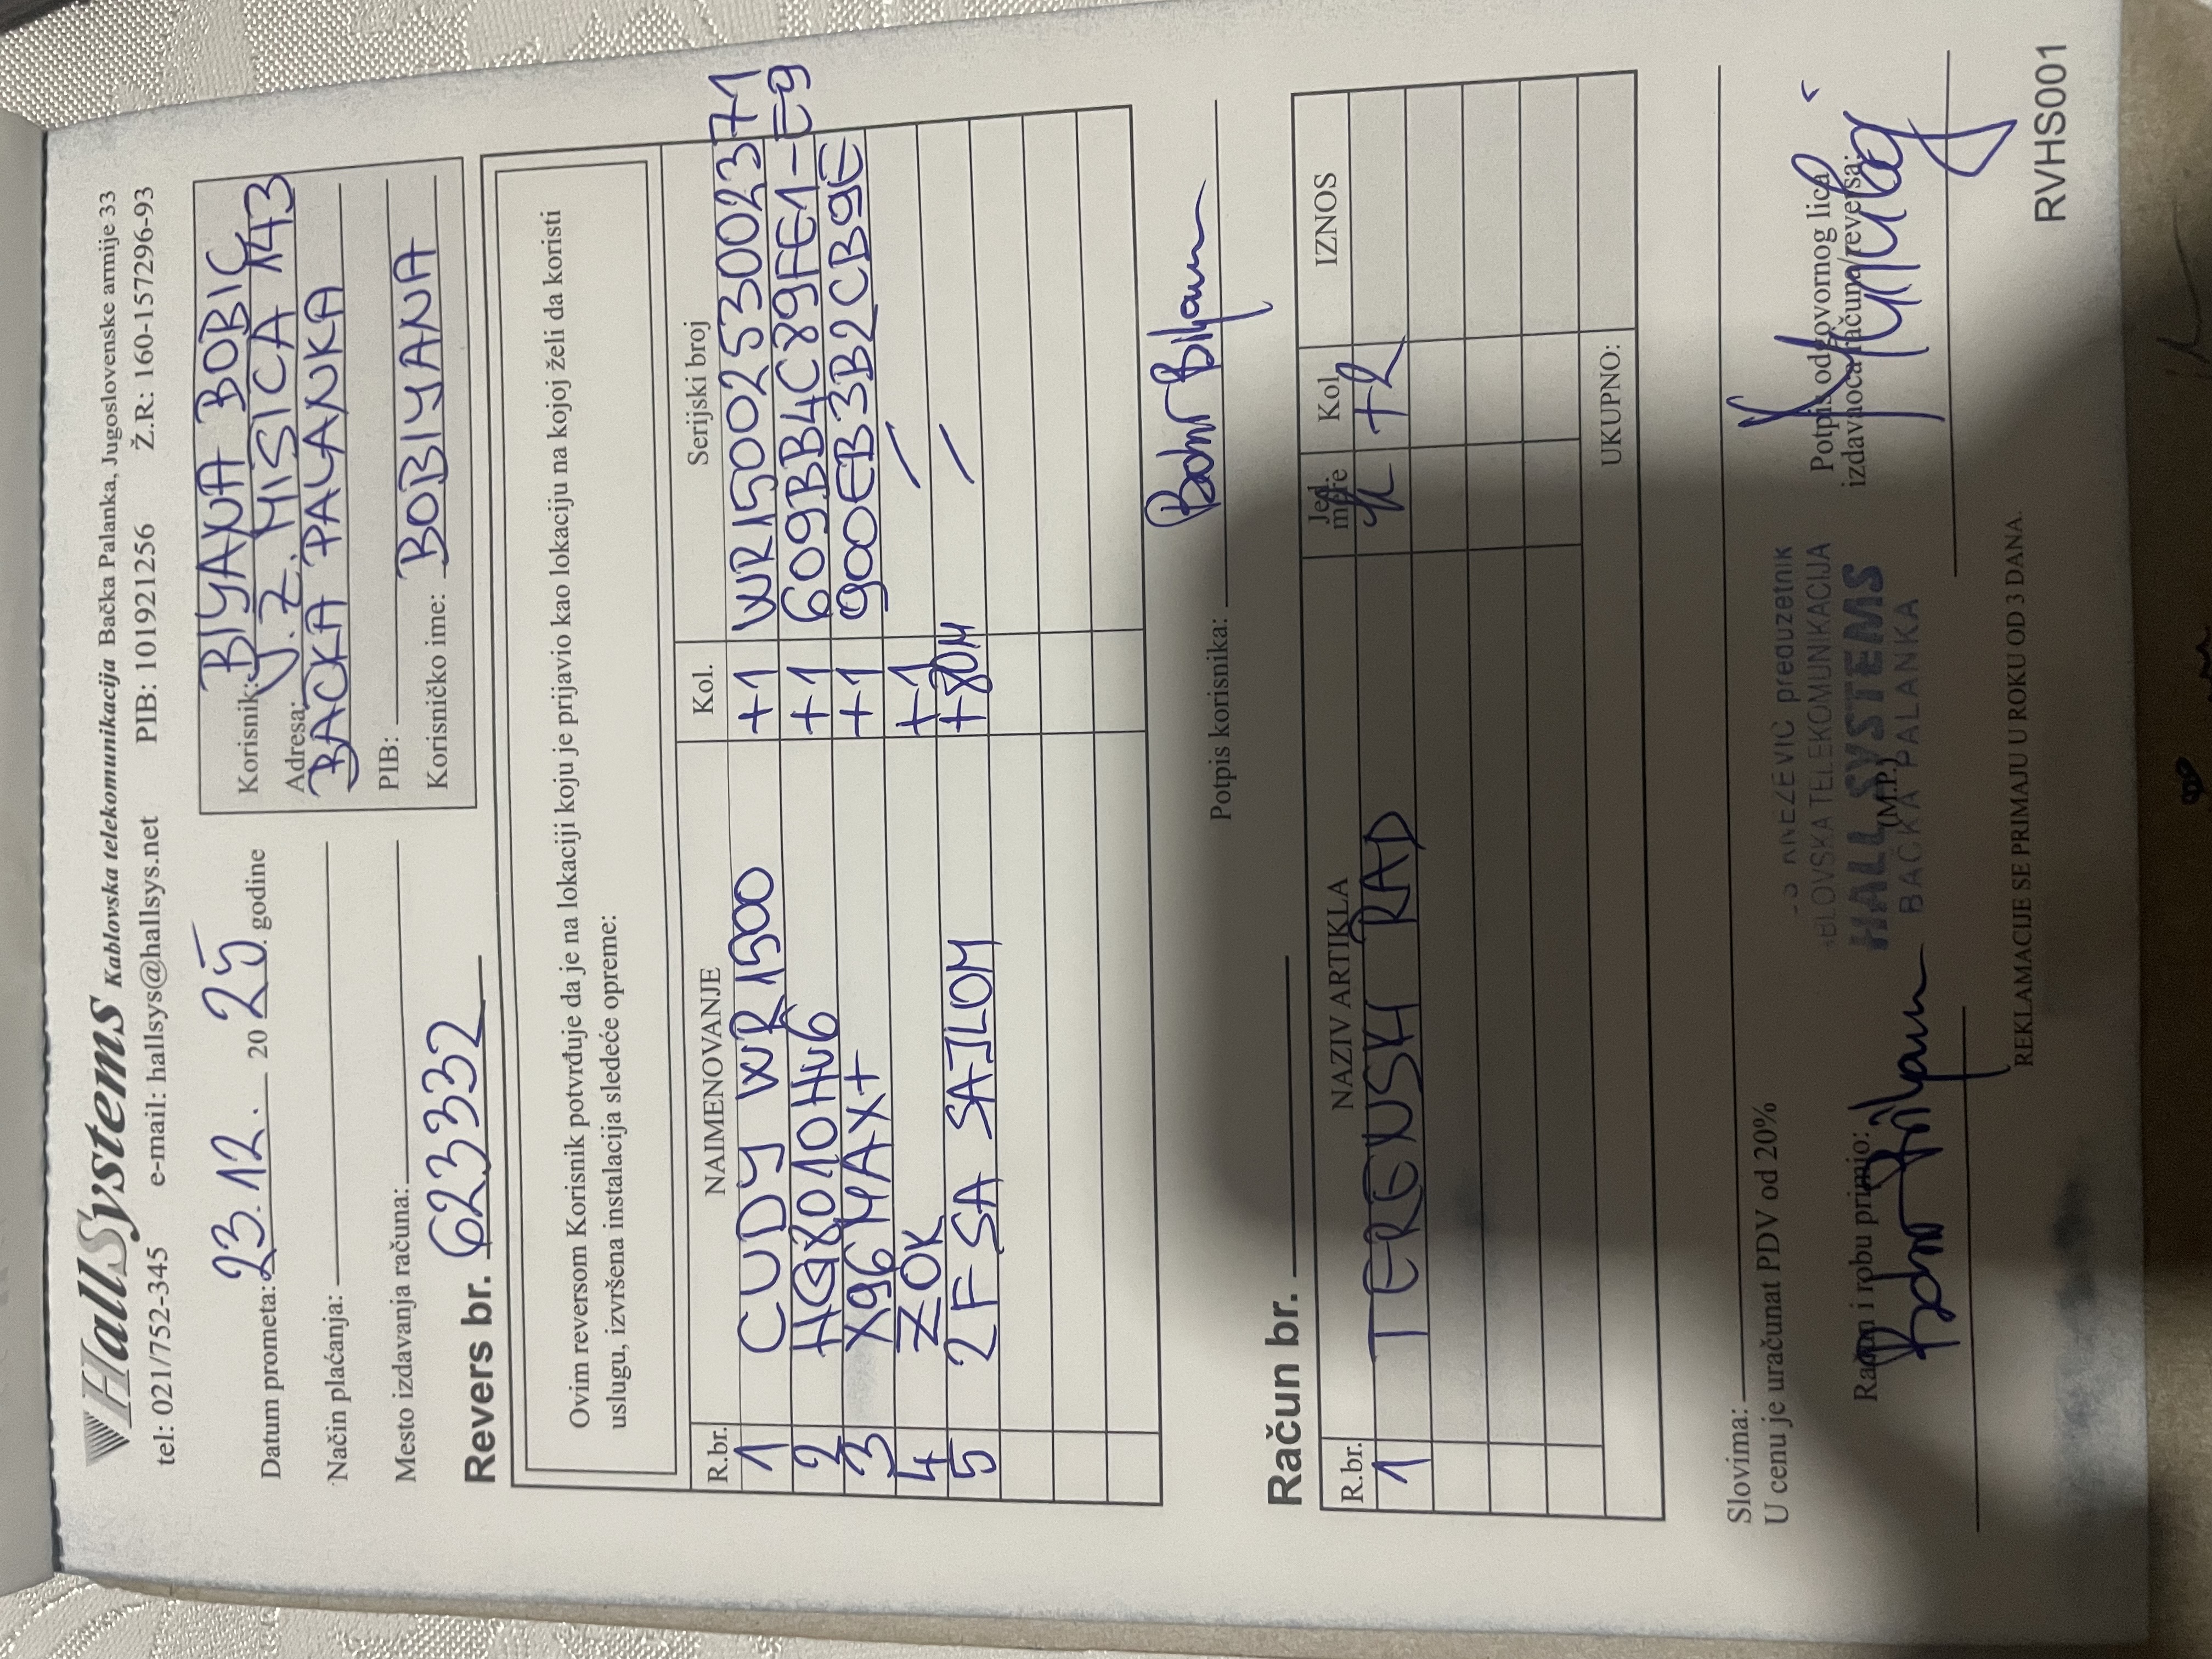 HallSystems Kablovska telekomunikacija Bačka Palanka, Jugoslovenske armije 33
tel: 021/752-345 e-mail: hallsys@hallsys.net PIB: 101921256 Ž.R.: 160-157296-93
Datum prometa: 23.12. 20 25. godine
Način plaćanja:
Mesto izdavanja računa:
Korisnik: BIYANA BOBIC
Adresa: J.Z. MISICA 143
BACKA PALANKA
PIB:
Korisničko ime: BOBIYANA
Revers br. 623332
Ovim reversom Korisnik potvrđuje da je na lokaciji koju je prijavio kao lokaciju na kojoj želi da koristi
uslugu, izvršena instalacija sledeće opreme:
R.br. NAIMENOVANJE Kol. Serijski broj
1 CUDY WR1500 +1 WR1500253002371
2 HG8010Hv6 +1 609BB4C89FE1-E9
3 X96 MAX+ +1 900EB3B2CB9E
4 ZOK +1 /
5 2F SA SAJLOM +80M /
Potpis korisnika:
Račun br.
R.br. NAZIV ARTIKLA Jed. mere Kol. IZNOS
1 TERENSKI RAD +2
UKUPNO:
Slovima:
U cenu je uračunat PDV od 20%
Račun i robu primio:
KNEŽEVIĆ preduzetnik
KABLOVSKA TELEKOMUNIKACIJA
HALL SYSTEMS
(M.P.)
BAČKA PALANKA
Potpis odgovornog lica
izdavaoca računa/reversa:
REKLAMACIJE SE PRIMAJU U ROKU OD 3 DANA.
RVHS001